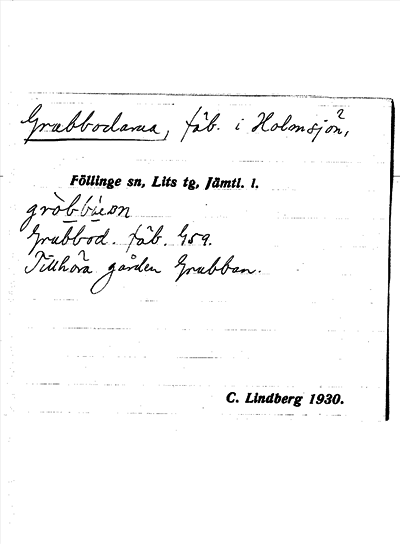 Grubbodarna, fäb. i Holmsjön,
Föllinge sn, Lits tg, Jämtl. l.
Grubbod. fäb. G59.
Tillhöra gården Grubban.
C. Lindberg 1930.